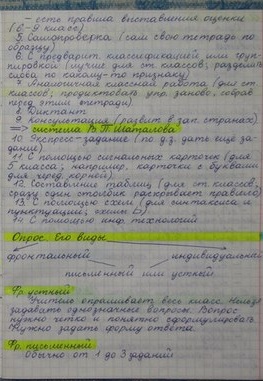 — есть правила выставления оценки
(6-9 класс)
5. Самопроверка (сам свою тетрадь по
образцу)
6. С предварит. классификацией или груп-
пировкой (лучше для ст. классов; раздели
слова по какому-то признаку)
7. Аналогичная классная работа (для ст.
классов; продиктовать упр. заново, собрав
перед этим тетради)
8. Диктант
9. Консультация (развит в зап. странах)
=> система В.П. Шаталова
10. Экспресс-задание (по д.з. дать ещё за-
дание)
11. С помощью сигнальных карточек (для
5 класса, например, карточки с буквами
для черед. корней)
12. Составление таблиц (для ст. классов,
сразу один столбик раскрывает правило)
13. С помощью схем (для синтаксиса и
пунктуации, схемы БЗ)
14. С помощью инф. технологий
Опрос. Его виды
фронтальный индивидуальный
письменный или устный
Фр. устный
Учитель опрашивает весь класс. Нельзя
задавать однозначные вопросы. Вопрос
нужно чётко и понятно сформулировать.
Нужно задать форму ответа.
Фр. письменный
Обычно от 1 до 3 заданий